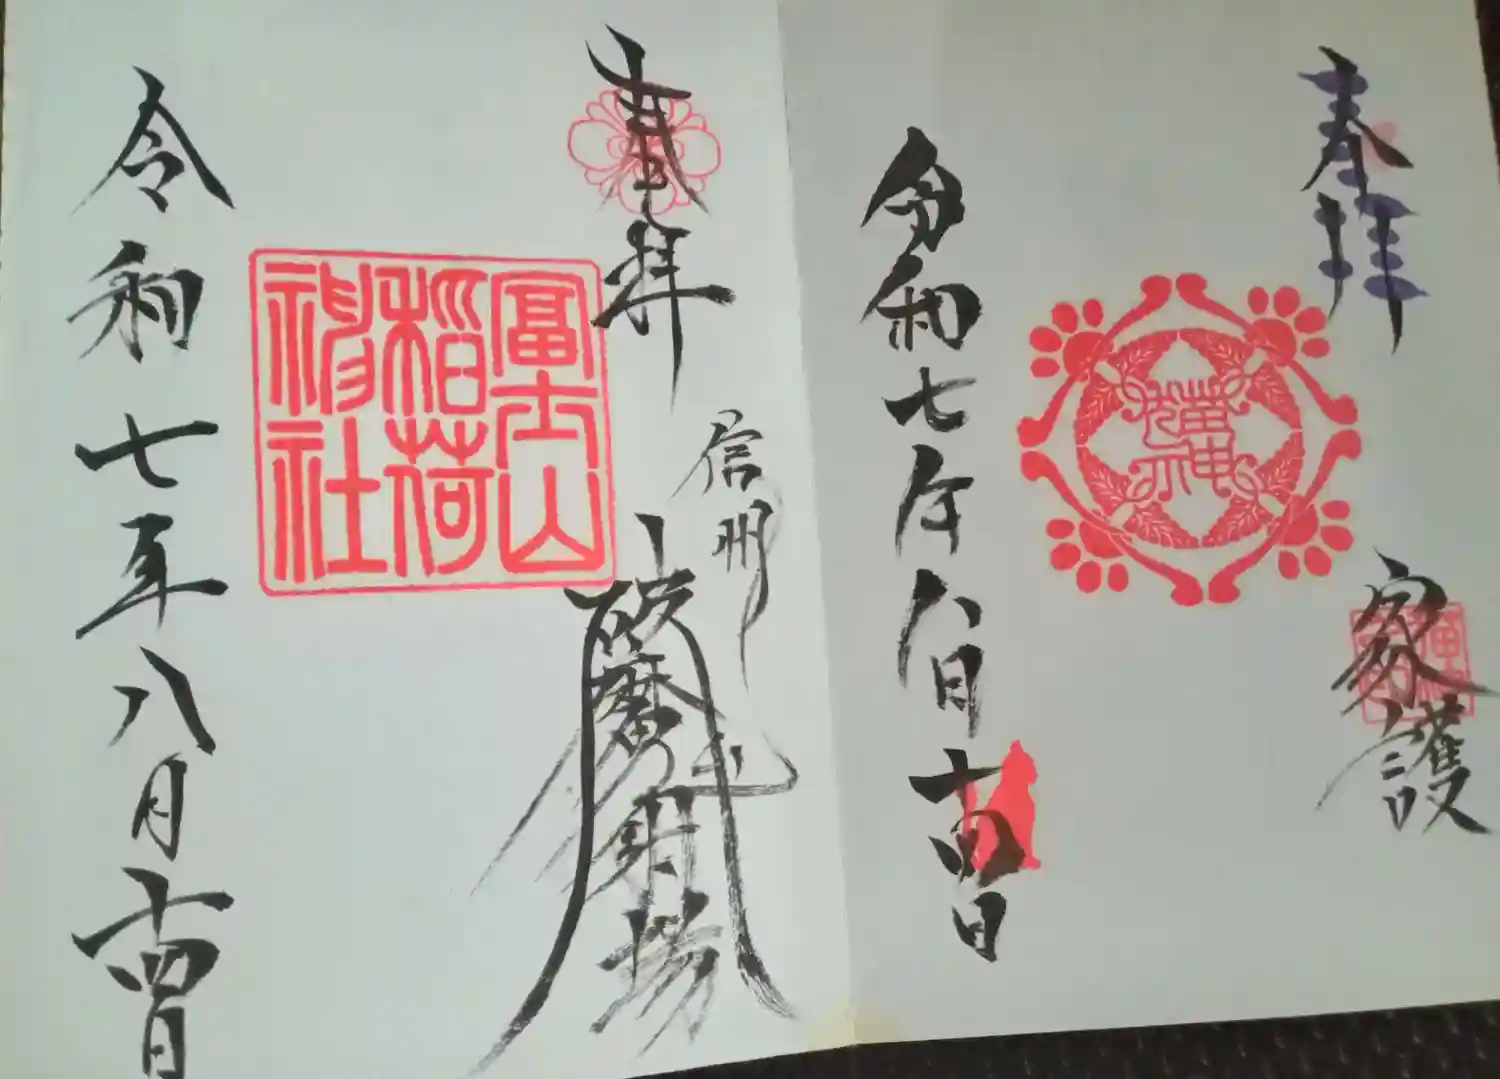 奉拝
家護
猫神
令和七年八月十四日
奉拝
信州
破魔
場
冨士山
稲荷
神社
令和七年八月十四日